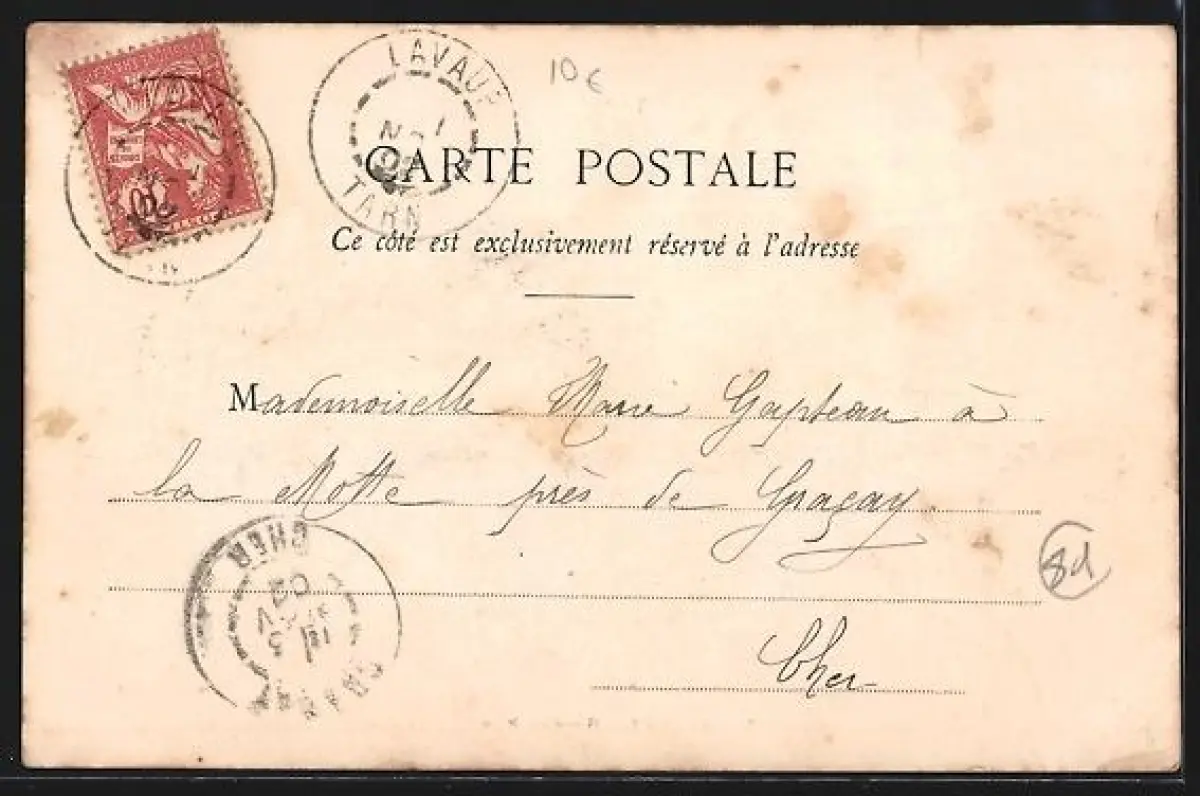 LAVAUR
TARN
10€
CARTE POSTALE
Ce côté est exclusivement réservé à l'adresse
Mademoiselle Marie Gapteau à
la Motte près de Graçay
CHER
81
Cher